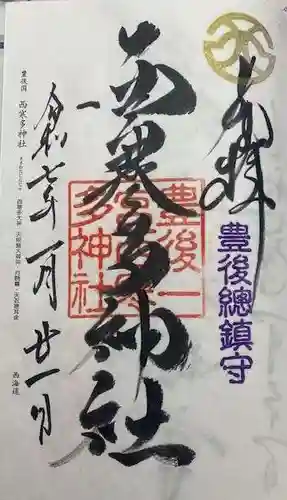 奉拝
豊後總鎮守
西寒多神社
豊後一
宮西寒
多神社
令和七年一月廿一日
豊後国 西寒多神社
西海道